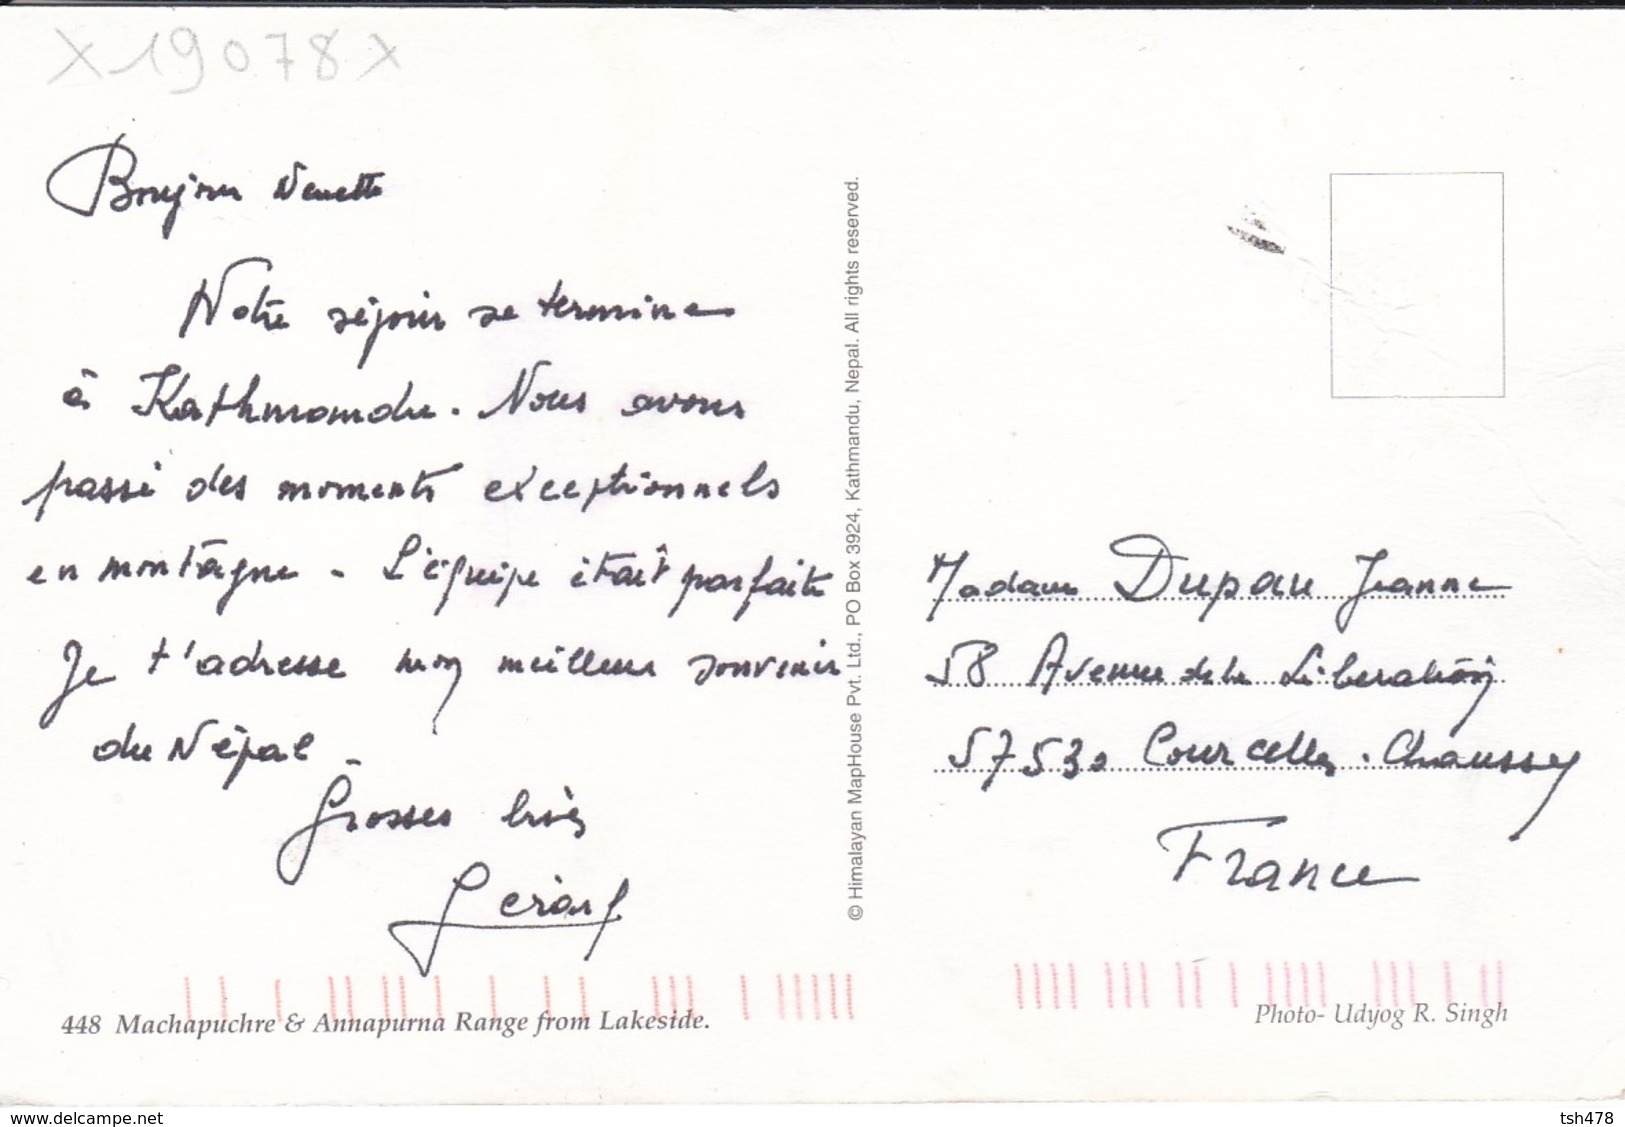 X 19078 X
Bonjour Nenette
Notre séjour se termine
à Kathmandu. Nous avons
passé des moments exceptionnels
en montagne - L'équipe était parfaite
Je t'adresse mon meilleur souvenir
du Népal -
Grosses bises
Gérard
© Himalayan MapHouse Pvt. Ltd., PO Box 3924, Kathmandu, Nepal. All rights reserved.
Madame Dupau Jeanne
58 Avenue de la Libération
57530 Courcelles-Chaussy
France
448 Machapuchre & Annapurna Range from Lakeside.
Photo- Udyog R. Singh
www.delcampe.net
tsh478